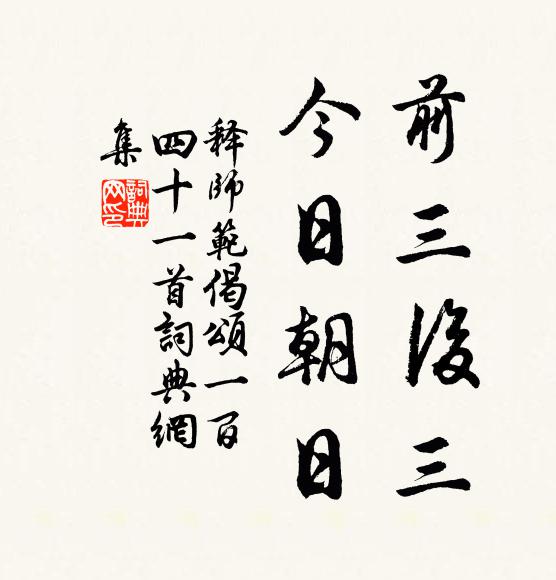 前三後三
今日朝日
释師範偈頌一百
四十一首詞典網
集
詞典
网印